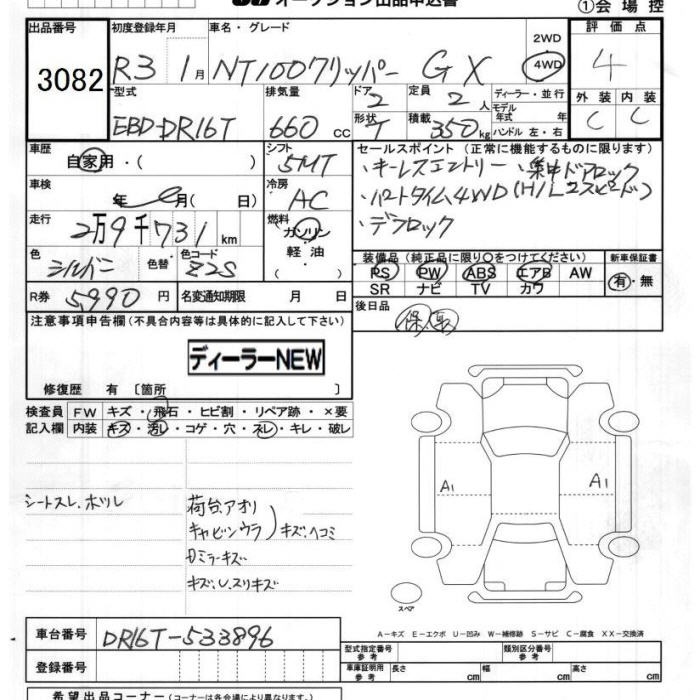 オークション出品申込書
①会場控
出品番号 初度登録年月 車名・グレード 2WD 評価点
3082 R3 1月 NT100クリッパー GX 4WD 4
型式 排気量 ドア 定員 ディーラー・並行 外装 内装
2 2人 モデル年式 年 C C
EBD-DR16T 660cc 形状 T 積載 350kg ハンドル 左・右
車歴 シフト セールスポイント (正常に機能するものに限ります)
自家用・( ) 5MT ・キーレスエントリー ・集中ドアロック
車検 冷房 ・パートタイム4WD(H/L 2スピード)
年 月( 日) AC ・デフロック
走行 燃料
2万9千731km ガソリン・軽油
色 色替 色コード 装備品 (純正品に限り○をつけてください) 新車保証書
シルバー Z2S PS PW ABS エアB AW 有・無
SR ナビ TV カワ
R券 5,990円 名変通知期限 月 日 後日品
注意事項申告欄(不具合内容等は具体的に記入して下さい) 保.取
ディーラーNEW
修復歴 有 〔箇所 〕
検査員 FW キズ・飛石・ヒビ割・リペア跡・×要
記入欄 内装 キズ・汚レ・コゲ・穴・スレ・キレ・破レ
A1 A1
シートスレ.ホツレ 荷台.アオリ
キャビンウラ キズ.ヘコミ
Dミラーキズ
キズ.U.スリキズ
スペア
車台番号 DR16T-533896
A-キズ E-エクボ U-凹み W-補修跡 S-サビ C-腐食 XX-交換済
型式指定番号 参考 類別区分番号 参考
登録番号 車庫証明用 参考 長さ cm 幅 cm 高さ cm
希望出品コーナー (コーナーは各会場により異なります。)